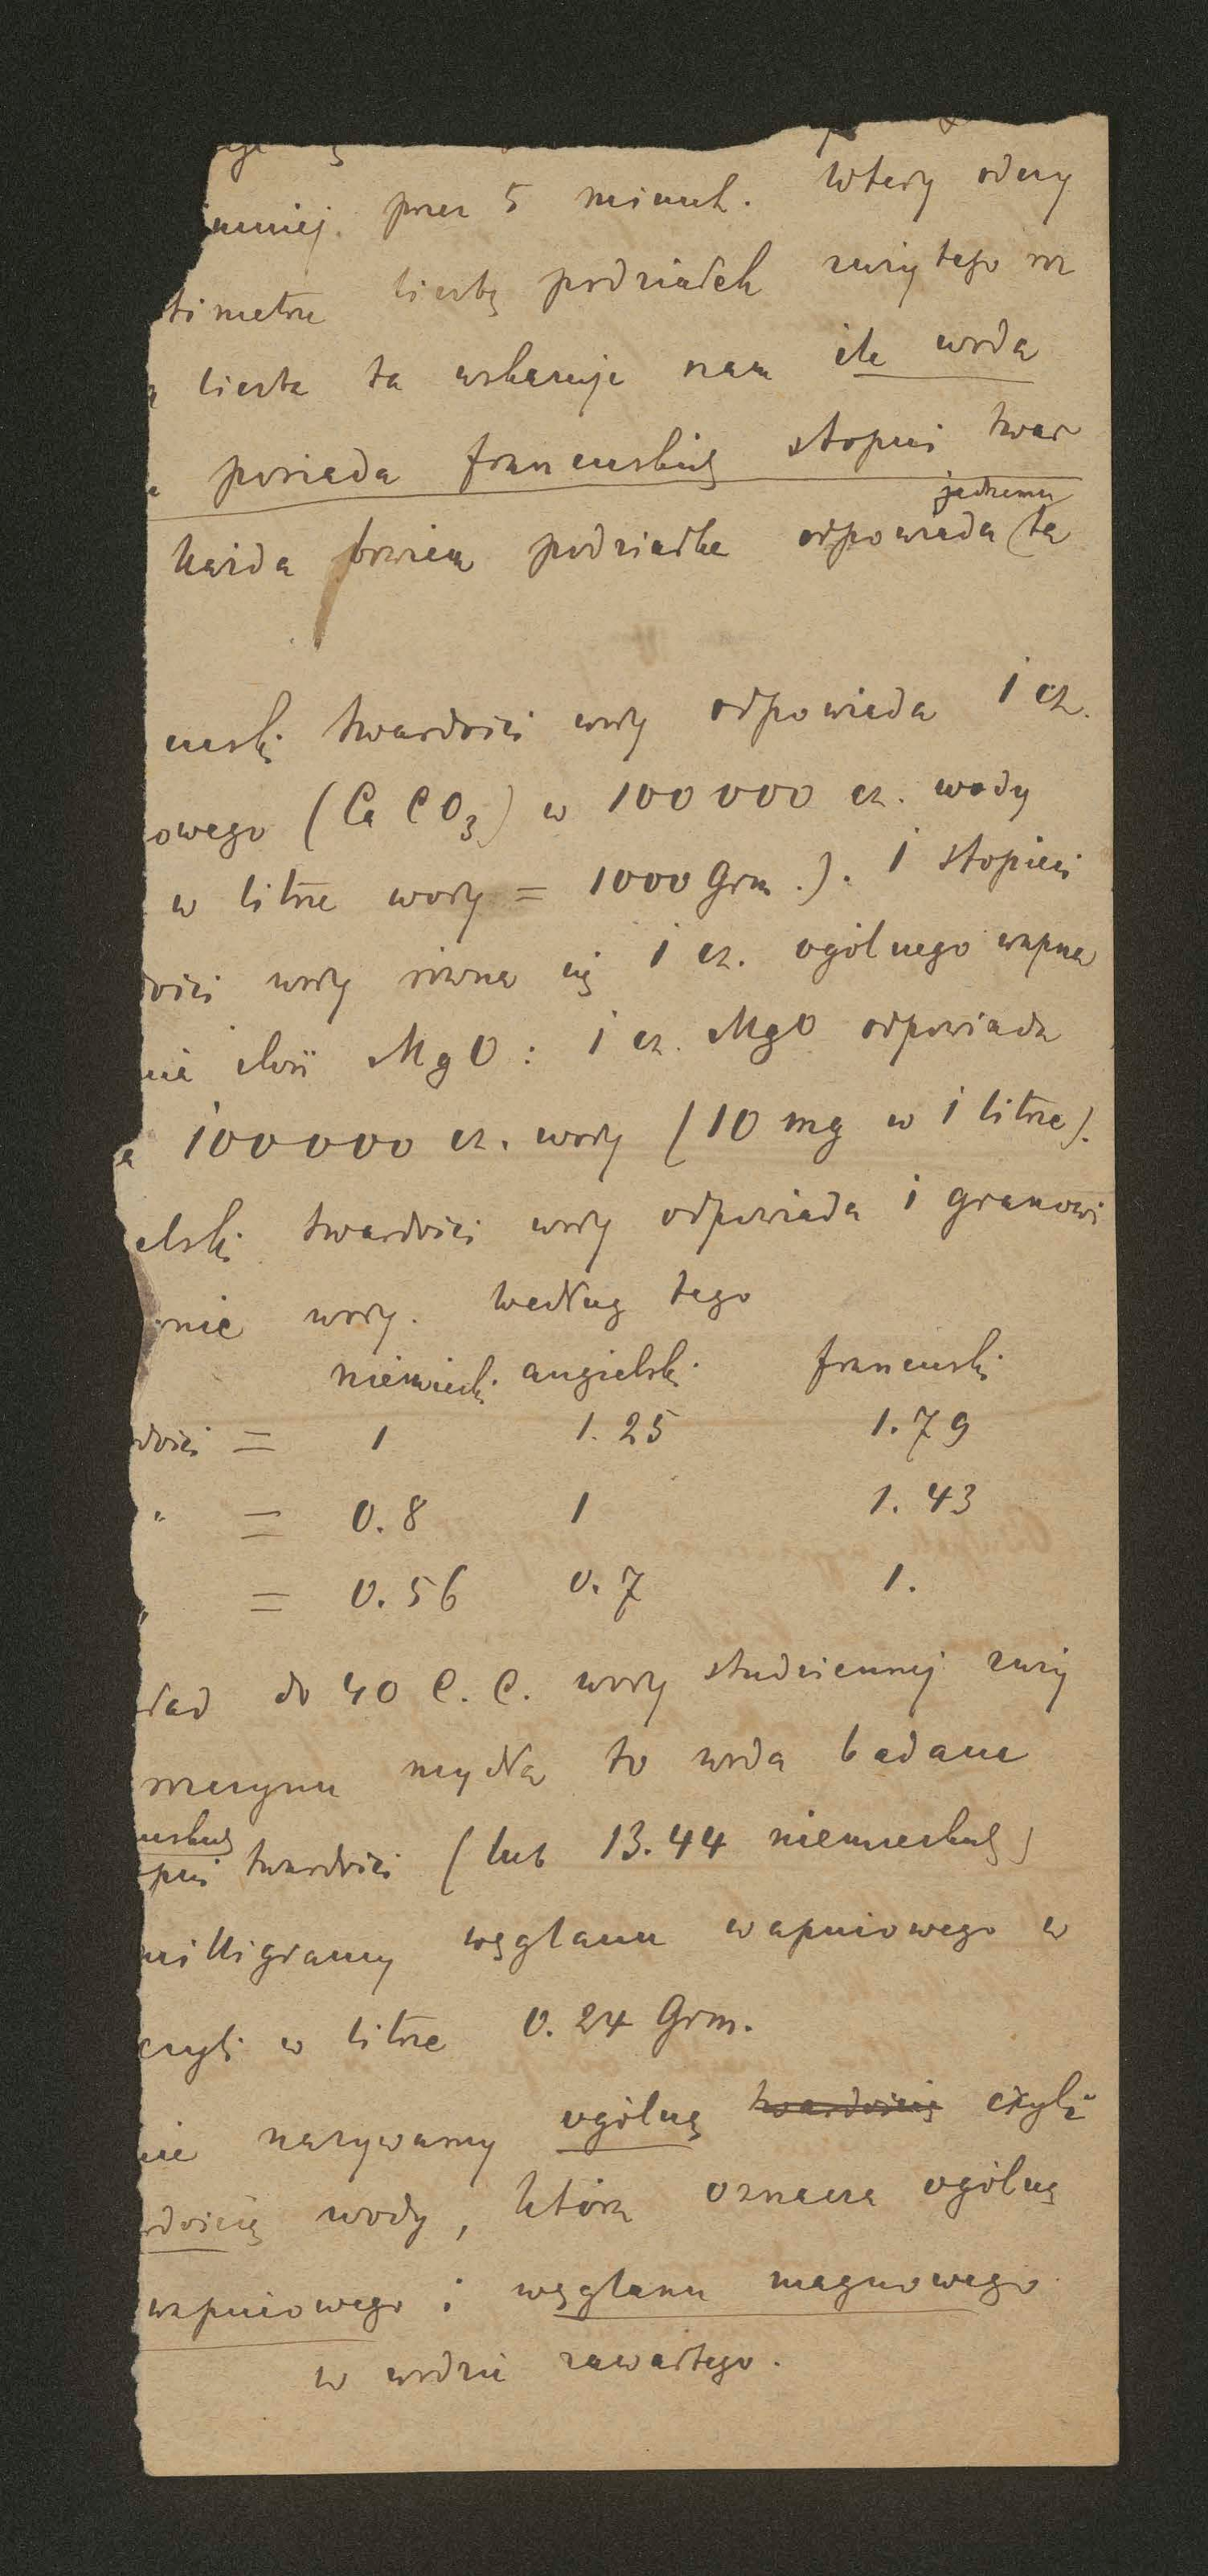 mniej. przez 5 minut. Wtedy odczy
timetrze liczbę podziałek zużytego roz
liczba ta wskazuje nam ile woda
posiada francuskich stopni twar
jednemu
każda bowiem podziałka odpowiada ta
cuski twardości wody odpowiada 1 cz.
owego (CaCO3) w 100000 cz. wody
w litrze wody = 1000 Grm.). 1 stopień
dości wody równa się 1 cz. ogólnego wapna
nie ilości MgO: 1 cz. MgO odpowiada
100000 cz. wody (10 mg w 1 litrze).
elski twardości wody odpowiada 1 granowi
onie wody. Według tego
niemiecki angielski francuski
dości = 1 1.25 1.79
" = 0.8 1 1.43
" = 0.56 0.7 1.
ład do 40 C.C. wody studziennej zuży
rozczynu mydła to woda badana
uskich
pni twardości (lub 13.44 niemieckich)
milligramy węglanu wapniowego w
czyli w litrze 0.24 Grm.
nie nazywamy ogólną twardością czyli
rdością wody, która oznacza ogólną
wapniowego i węglanu magnowego
w wodzie zawartego.